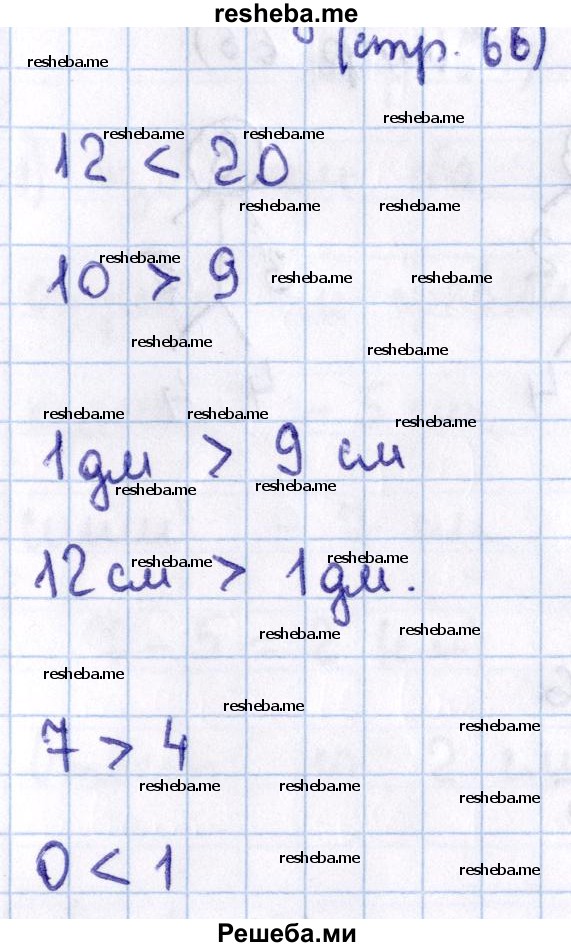 resheba.me
(стр. 66)
resheba.me
resheba.me
resheba.me resheba.me
12 < 20
resheba.me resheba.me
resheba.me
10 > 9
resheba.me resheba.me
resheba.me
resheba.me
resheba.me resheba.me
resheba.me
1 дм > 9 см
resheba.me resheba.me
resheba.me resheba.me
12 см > 1 дм.
resheba.me resheba.me
resheba.me
resheba.me
resheba.me
7 > 4
resheba.me resheba.me
resheba.me
resheba.me
0 < 1
resheba.me
Решеба.ми